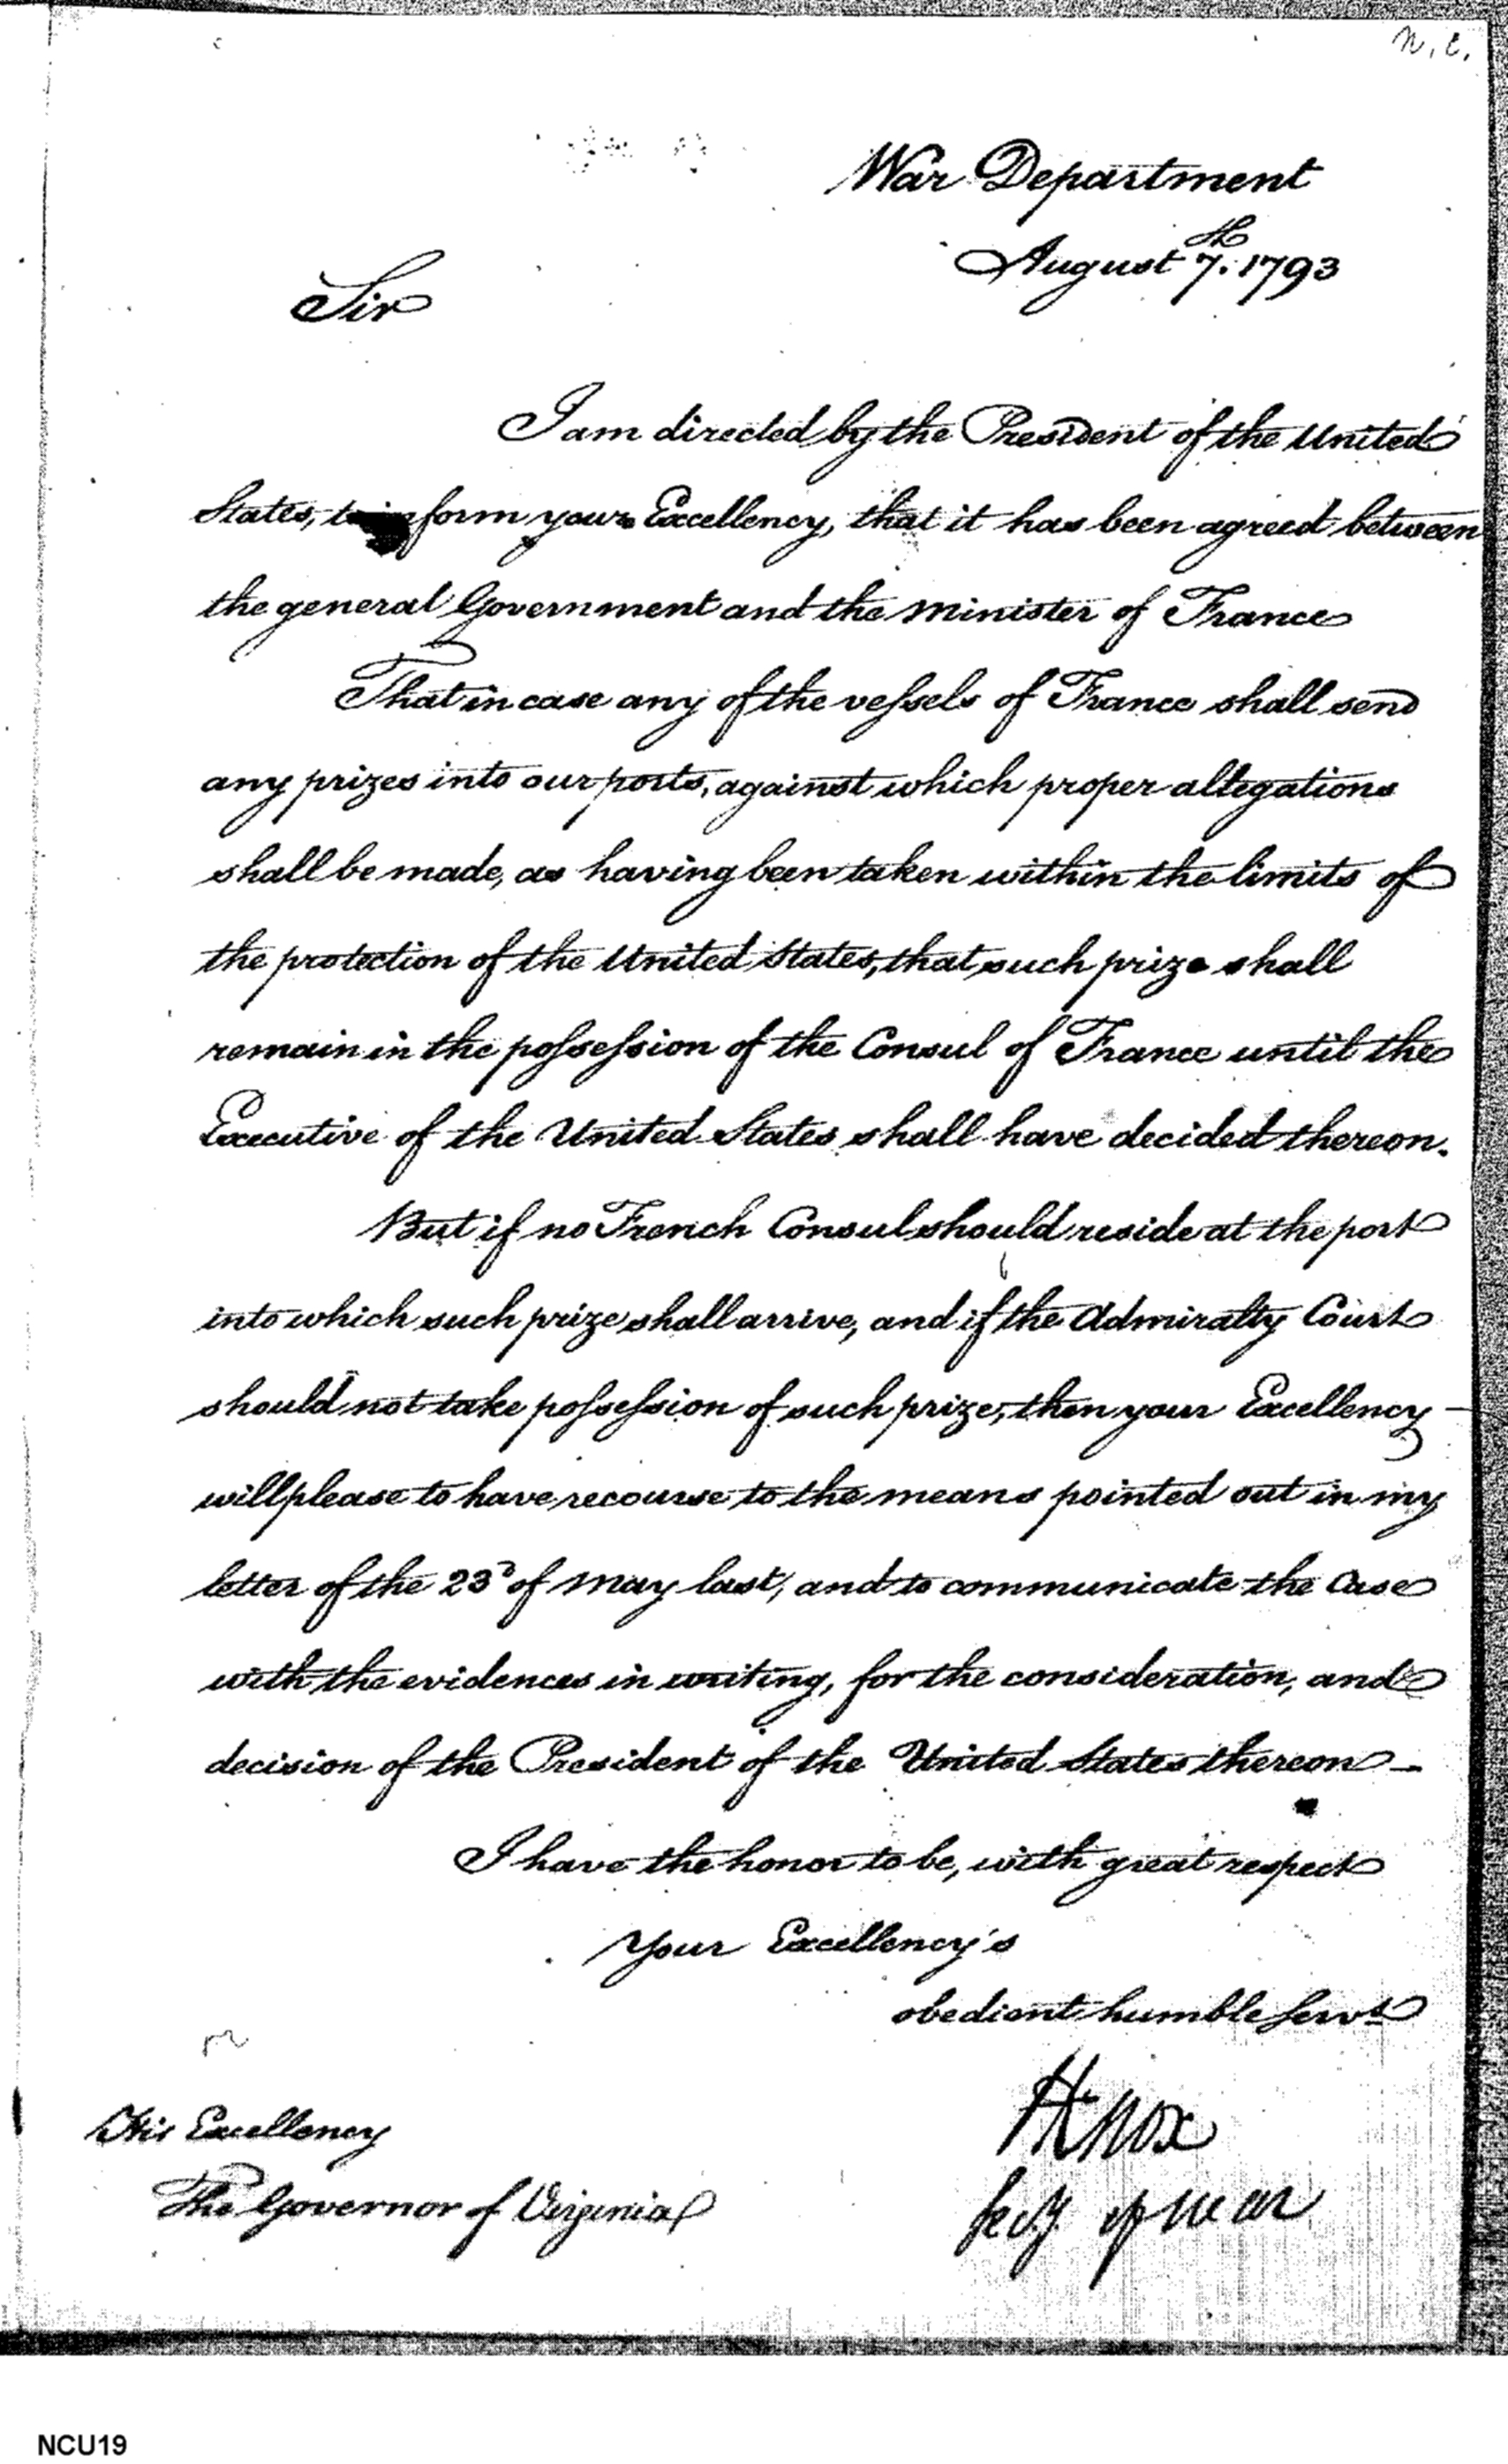 N.C.
War Department
August 7th. 1793
Sir
I am directed by the President of the United
States, to inform your Excellency, that it has been agreed between
the general Government and the minister of France
That in case any of the vessels of France shall send
any prizes into our ports, against which proper allegations
shall be made, as having been taken within the limits of
the protection of the United States, that such prize shall
remain in the possession of the Consul of France until the
Executive of the United States shall have decided thereon.
But if no French Consul should reside at the port
into which such prize shall arrive, and if the Admiralty Court
should not take possession of such prize, then your Excellency
will please to have recourse to the means pointed out in my
letter of the 23d of May last, and to communicate the Case
with the evidences in writing, for the consideration, and
decision of the President of the United States thereon —
I have the honor to be, with great respect
Your Excellency's
obedient humble Servt
HKnox
Secy of war
His Excellency
The Governor of Virginia
NCU19